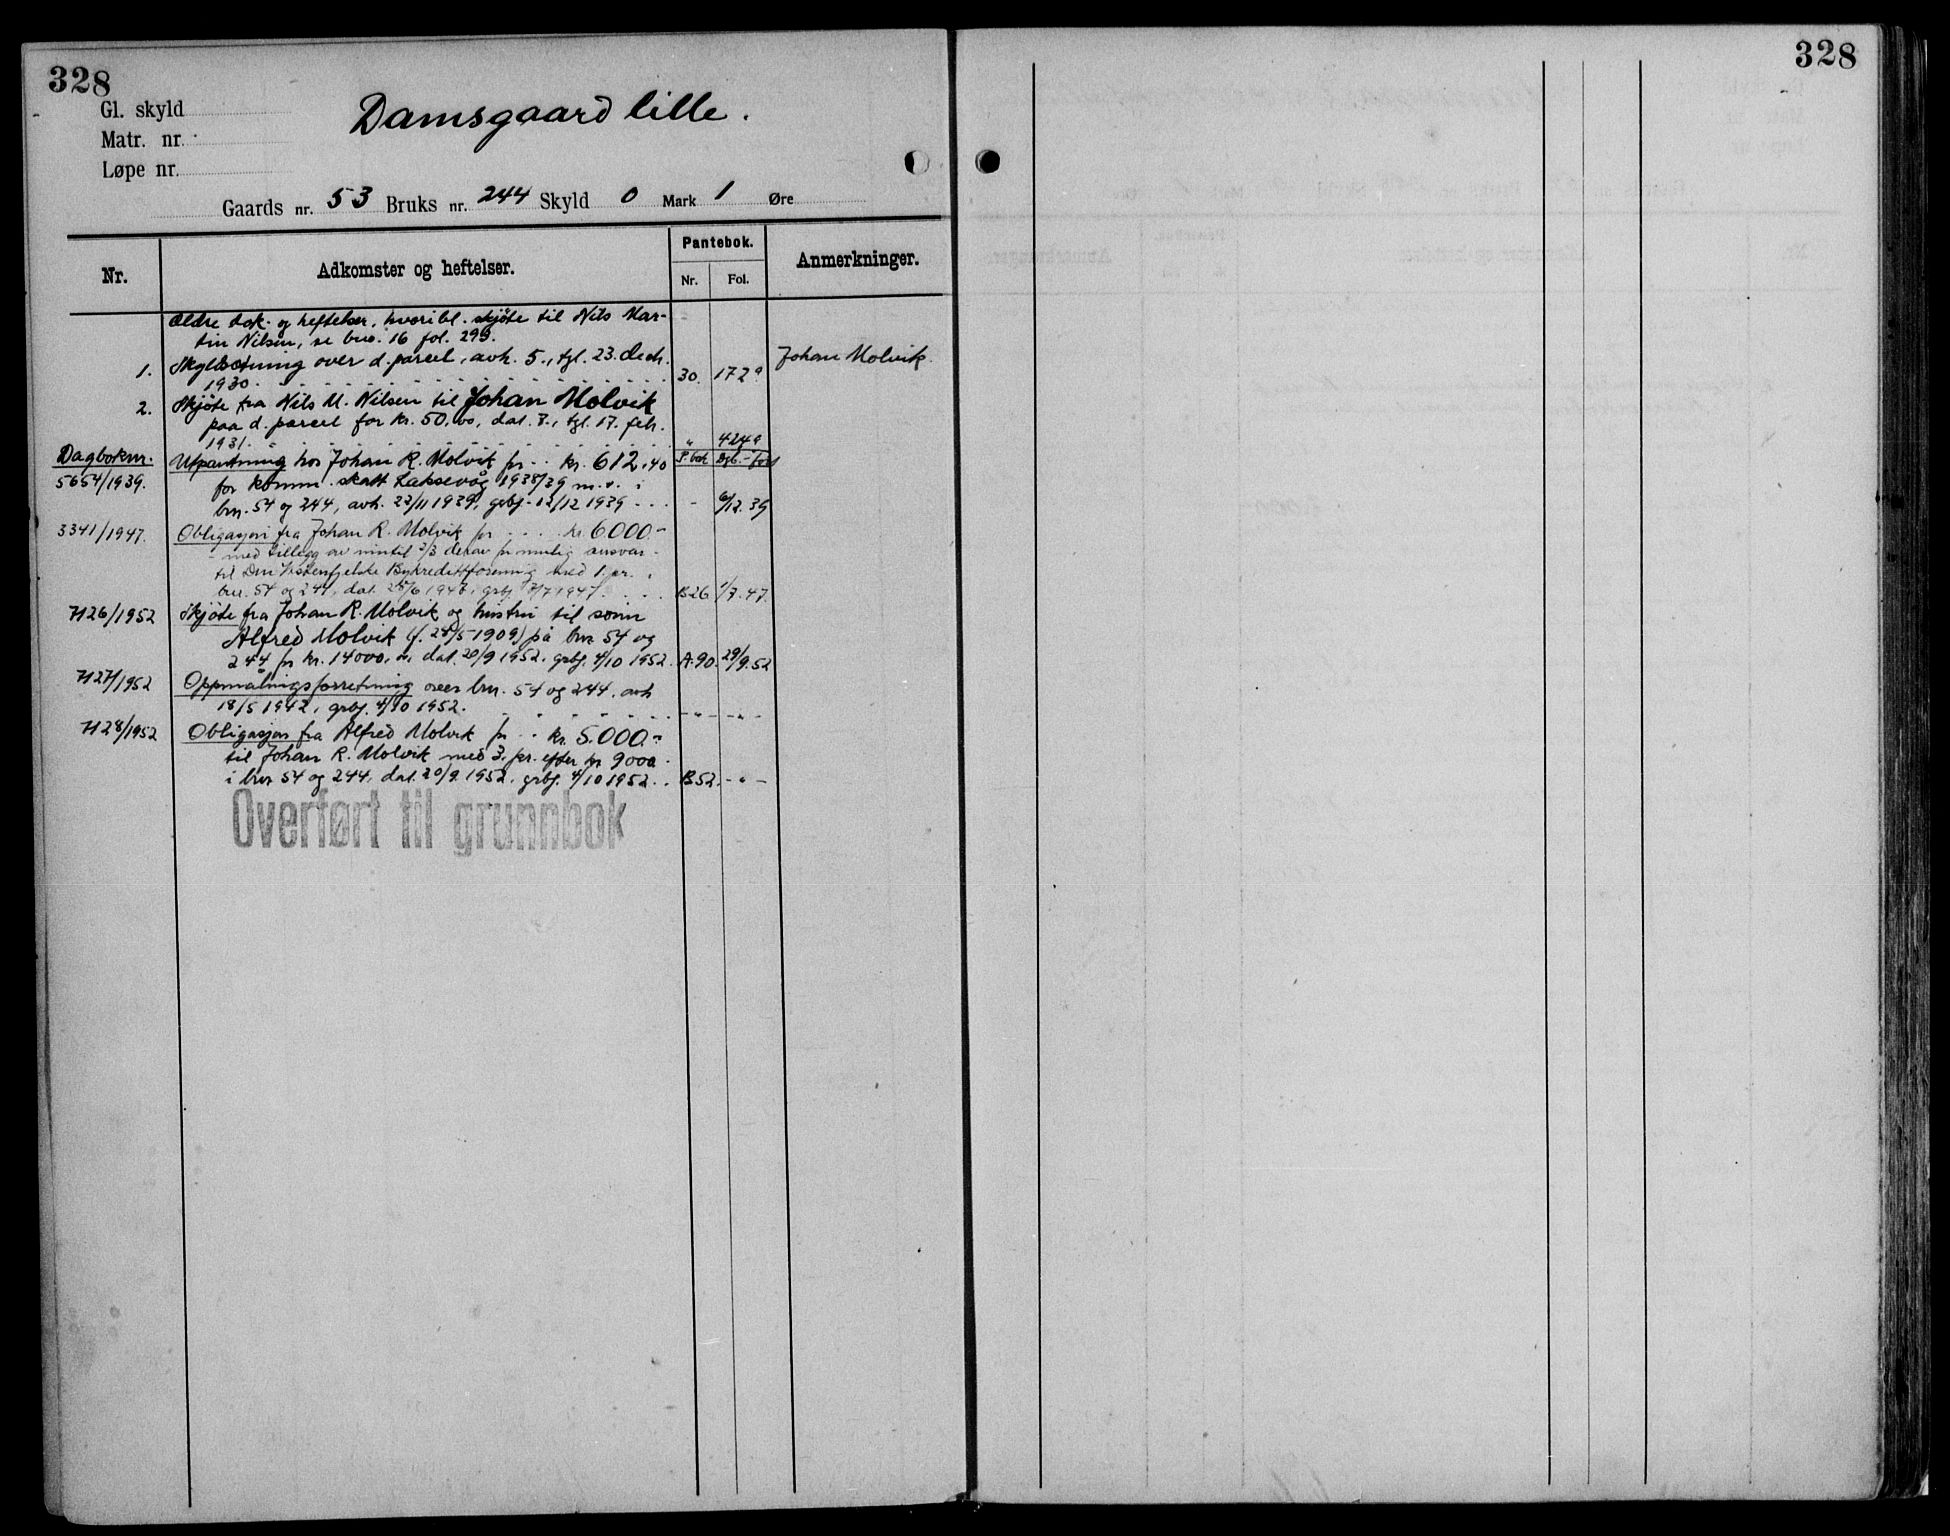 328
328
Gl. skyld
Damsgaard lille.
Matr. nr.
Løpe nr.
Gaards nr. 53 Bruks nr. 244 Skyld 0 Mark 1 Øre
Nr.
Adkomster og heftelser.
Pantebok.
Nr. Fol.
Anmerkninger.
Ældre dok. og heftelser, hvoribl. skjøte til Nils Mar-
tin Nilsen, se bno. 16 fol. 299.
1. Skyldsætning over d. parcel, avh. 5., tgl. 23. decb. Johan Molvik.
1930. 30. 172a
2. Skjøte fra Nils M. Nilsen til Johan Molvik
paa d. parcel for kr. 50,00, dat. 7., tgl. 17. feb.
1931. " 424a
Dagboknr. Utpantning hos Johan R. Molvik for kr. 612,40 P.bok Dgb.-ført
5654/1939. for komm. skatt Laksevåg 1938/39 m.v. i
bnr. 54 og 244, avh. 23/11 1939, grbf. 12/12 1939 - 6/12.39
3341/1947. Obligasjon fra Johan R. Molvik for kr. 6000.-
- med tillegg av inntil 2/3 derav for mulig ansvar -
til Den Vestenfjelske Bykredittforening med 1. pr. i
bnr. 54 og 244, dat. 25/6 1947, grbf. 7/7 1947. B26. 1/7.47.
7126/1952 Skjøte fra Johan R. Molvik og hustru til sønn
Alfred Molvik (f. 28/5 1909) på bnr 54 og
244 for kr. 14000, dat. 20/9 1952, grbf. 4/10 1952. A.90. 29/9.52
7127/1952 Oppmålingsforretning over bnr. 54 og 244, avh
18/5 1942, grbf. 4/10 1952. - " - - " -
7128/1952 Obligasjon fra Alfred Molvik for kr. 5.000.-
til Johan R. Molvik med 3. pr. efter kr 9000
i bnr 54 og 244, dat. 20/9 1952, grbf. 4/10 1952. B52. - " -
Overført til grunnbok